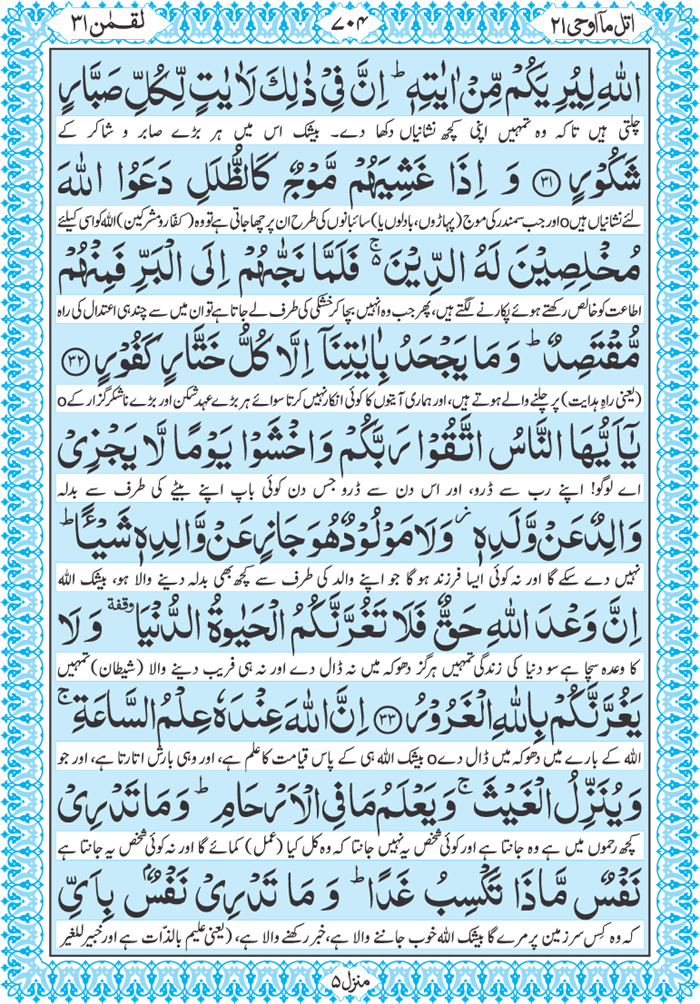 اتل مآ اوحی ۲۱ ۷۰۴ لقمٰن ۳۱
اللّٰهِ لِیُرِیَكُمْ مِّنْ اٰیٰتِهٖ ؕ اِنَّ فِیْ ذٰلِكَ لَاٰیٰتٍ لِّكُلِّ صَبَّارٍ
چلتی ہیں تاکہ وہ تمہیں اپنی کچھ نشانیاں دکھا دے۔ بیشک اس میں ہر بڑے صابر و شاکر کے
شَكُوْرٍ ﴿۳۱﴾ وَ اِذَا غَشِیَهُمْ مَّوْجٌ كَالظُّلَلِ دَعَوُا اللّٰهَ
لئے نشانیاں ہیںo اور جب سمندر کی موج (پہاڑوں، بادلوں یا) سائبانوں کی طرح ان پر چھا جاتی ہے تو وہ (کفّار و مشرکین) اللہ کو اسی کیلئے
مُخْلِصِیْنَ لَهُ الدِّیْنَ ۚ۬ فَلَمَّا نَجّٰىهُمْ اِلَی الْبَرِّ فَمِنْهُمْ
اطاعت کو خالص رکھتے ہوئے پکارنے لگتے ہیں، پھر جب وہ انہیں بچا کر خشکی کی طرف لے جاتا ہے تو ان میں سے چند ہی اعتدال کی راہ
مُّقْتَصِدٌ ؕ وَ مَا یَجْحَدُ بِاٰیٰتِنَاۤ اِلَّا كُلُّ خَتَّارٍ كَفُوْرٍ ﴿۳۲﴾
(یعنی راہِ ہدایت) پر چلنے والے ہوتے ہیں، اور ہماری آیتوں کا کوئی انکار نہیں کرتا سوائے ہر بڑے عہد شکن اور بڑے ناشکر گزار کےo
یٰۤاَیُّهَا النَّاسُ اتَّقُوْا رَبَّكُمْ وَ اخْشَوْا یَوْمًا لَّا یَجْزِیْ
اے لوگو! اپنے رب سے ڈرو، اور اس دن سے ڈرو جس دن کوئی باپ اپنے بیٹے کی طرف سے بدلہ
وَالِدٌ عَنْ وَّلَدِهٖ ؗ وَ لَا مَوْلُوْدٌ هُوَ جَازٍ عَنْ وَّالِدِهٖ شَیْـًٔا ؕ
نہیں دے سکے گا اور نہ کوئی ایسا فرزند ہوگا جو اپنے والد کی طرف سے کچھ بھی بدلہ دینے والا ہو، بیشک اللہ
اِنَّ وَعْدَ اللّٰهِ حَقٌّ فَلَا تَغُرَّنَّكُمُ الْحَیٰوةُ الدُّنْیَا وقفة وَ لَا
کا وعدہ سچا ہے سو دنیا کی زندگی تمہیں ہرگز دھوکہ میں نہ ڈال دے اور نہ ہی فریب دینے والا (شیطان) تمہیں
یَغُرَّنَّكُمْ بِاللّٰهِ الْغَرُوْرُ ﴿۳۳﴾ اِنَّ اللّٰهَ عِنْدَهٗ عِلْمُ السَّاعَةِ ۚ
اللہ کے بارے میں دھوکہ میں ڈال دےo بیشک اللہ ہی کے پاس قیامت کا علم ہے، اور وہی بارش اتارتا ہے، اور جو
وَ یُنَزِّلُ الْغَیْثَ ۚ وَ یَعْلَمُ مَا فِی الْاَرْحَامِ ؕ وَ مَا تَدْرِیْ
کچھ رحموں میں ہے وہ جانتا ہے اور کوئی شخص یہ نہیں جانتا کہ وہ کل کیا (عمل) کمائے گا اور نہ کوئی شخص یہ جانتا ہے
نَفْسٌ مَّاذَا تَكْسِبُ غَدًا ؕ وَ مَا تَدْرِیْ نَفْسٌۢ بِاَیِّ
کہ وہ کِس سرزمین پر مرے گا بیشک اللہ خوب جاننے والا ہے، خبر رکھنے والا ہے، (یعنی علیم بالذّات ہے اور خبیر للغیر
منزل ۵